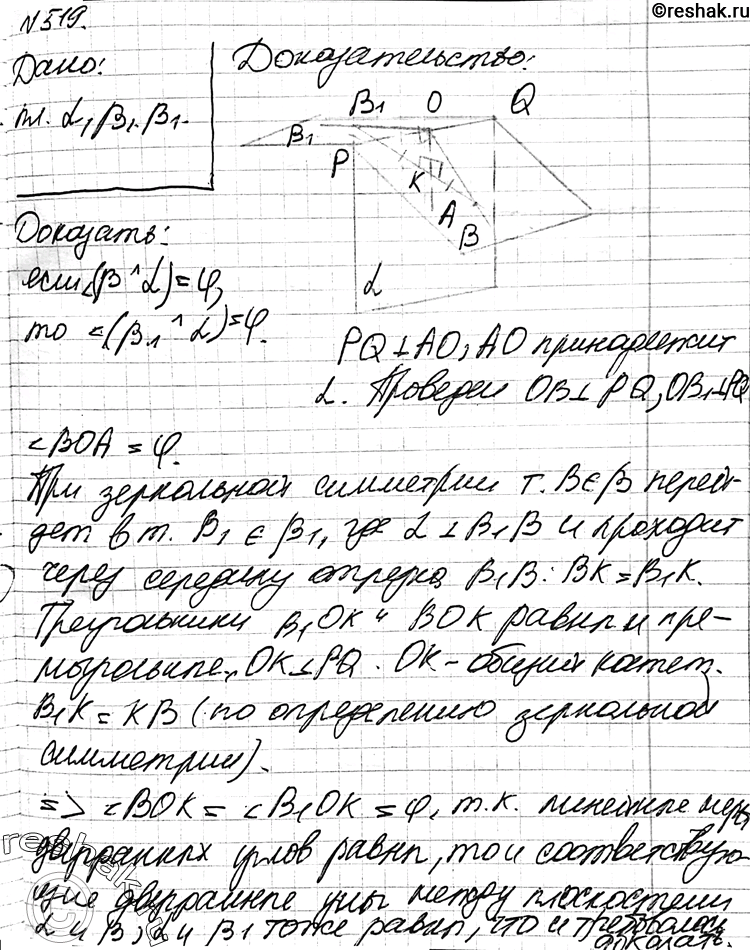 ©reshak.ru
№519.
Дано:
пл. α, β, β₁.
Доказать:
если ∠(β^α)=φ,
то ∠(β₁^α)=φ.
Доказательство:
B₁ O Q
β₁
P
K
A
B
α
PQ⊥AO, AO принадлежит
α. Проведем OB⊥PQ, OB₁⊥PQ
∠BOA = φ.
При зеркальной симметрии т. B∈β перей-
дет в т. B₁∈β₁, где α⊥B₁B и проходит
через середину отрезка B₁B: BK=B₁K.
Треугольники B₁OK и BOK равны и пря-
моугольные, OK⊥PQ. OK - общий катет.
B₁K=KB (по определению зеркальной
симметрии).
=> ∠BOK = ∠B₁OK = φ, т.к. линейные меры
двугранных углов равны, то и соответствую-
щие двугранные углы между плоскостями
α и β, α и β₁ тоже равны, что и требовалось
доказать.
reshak.ru